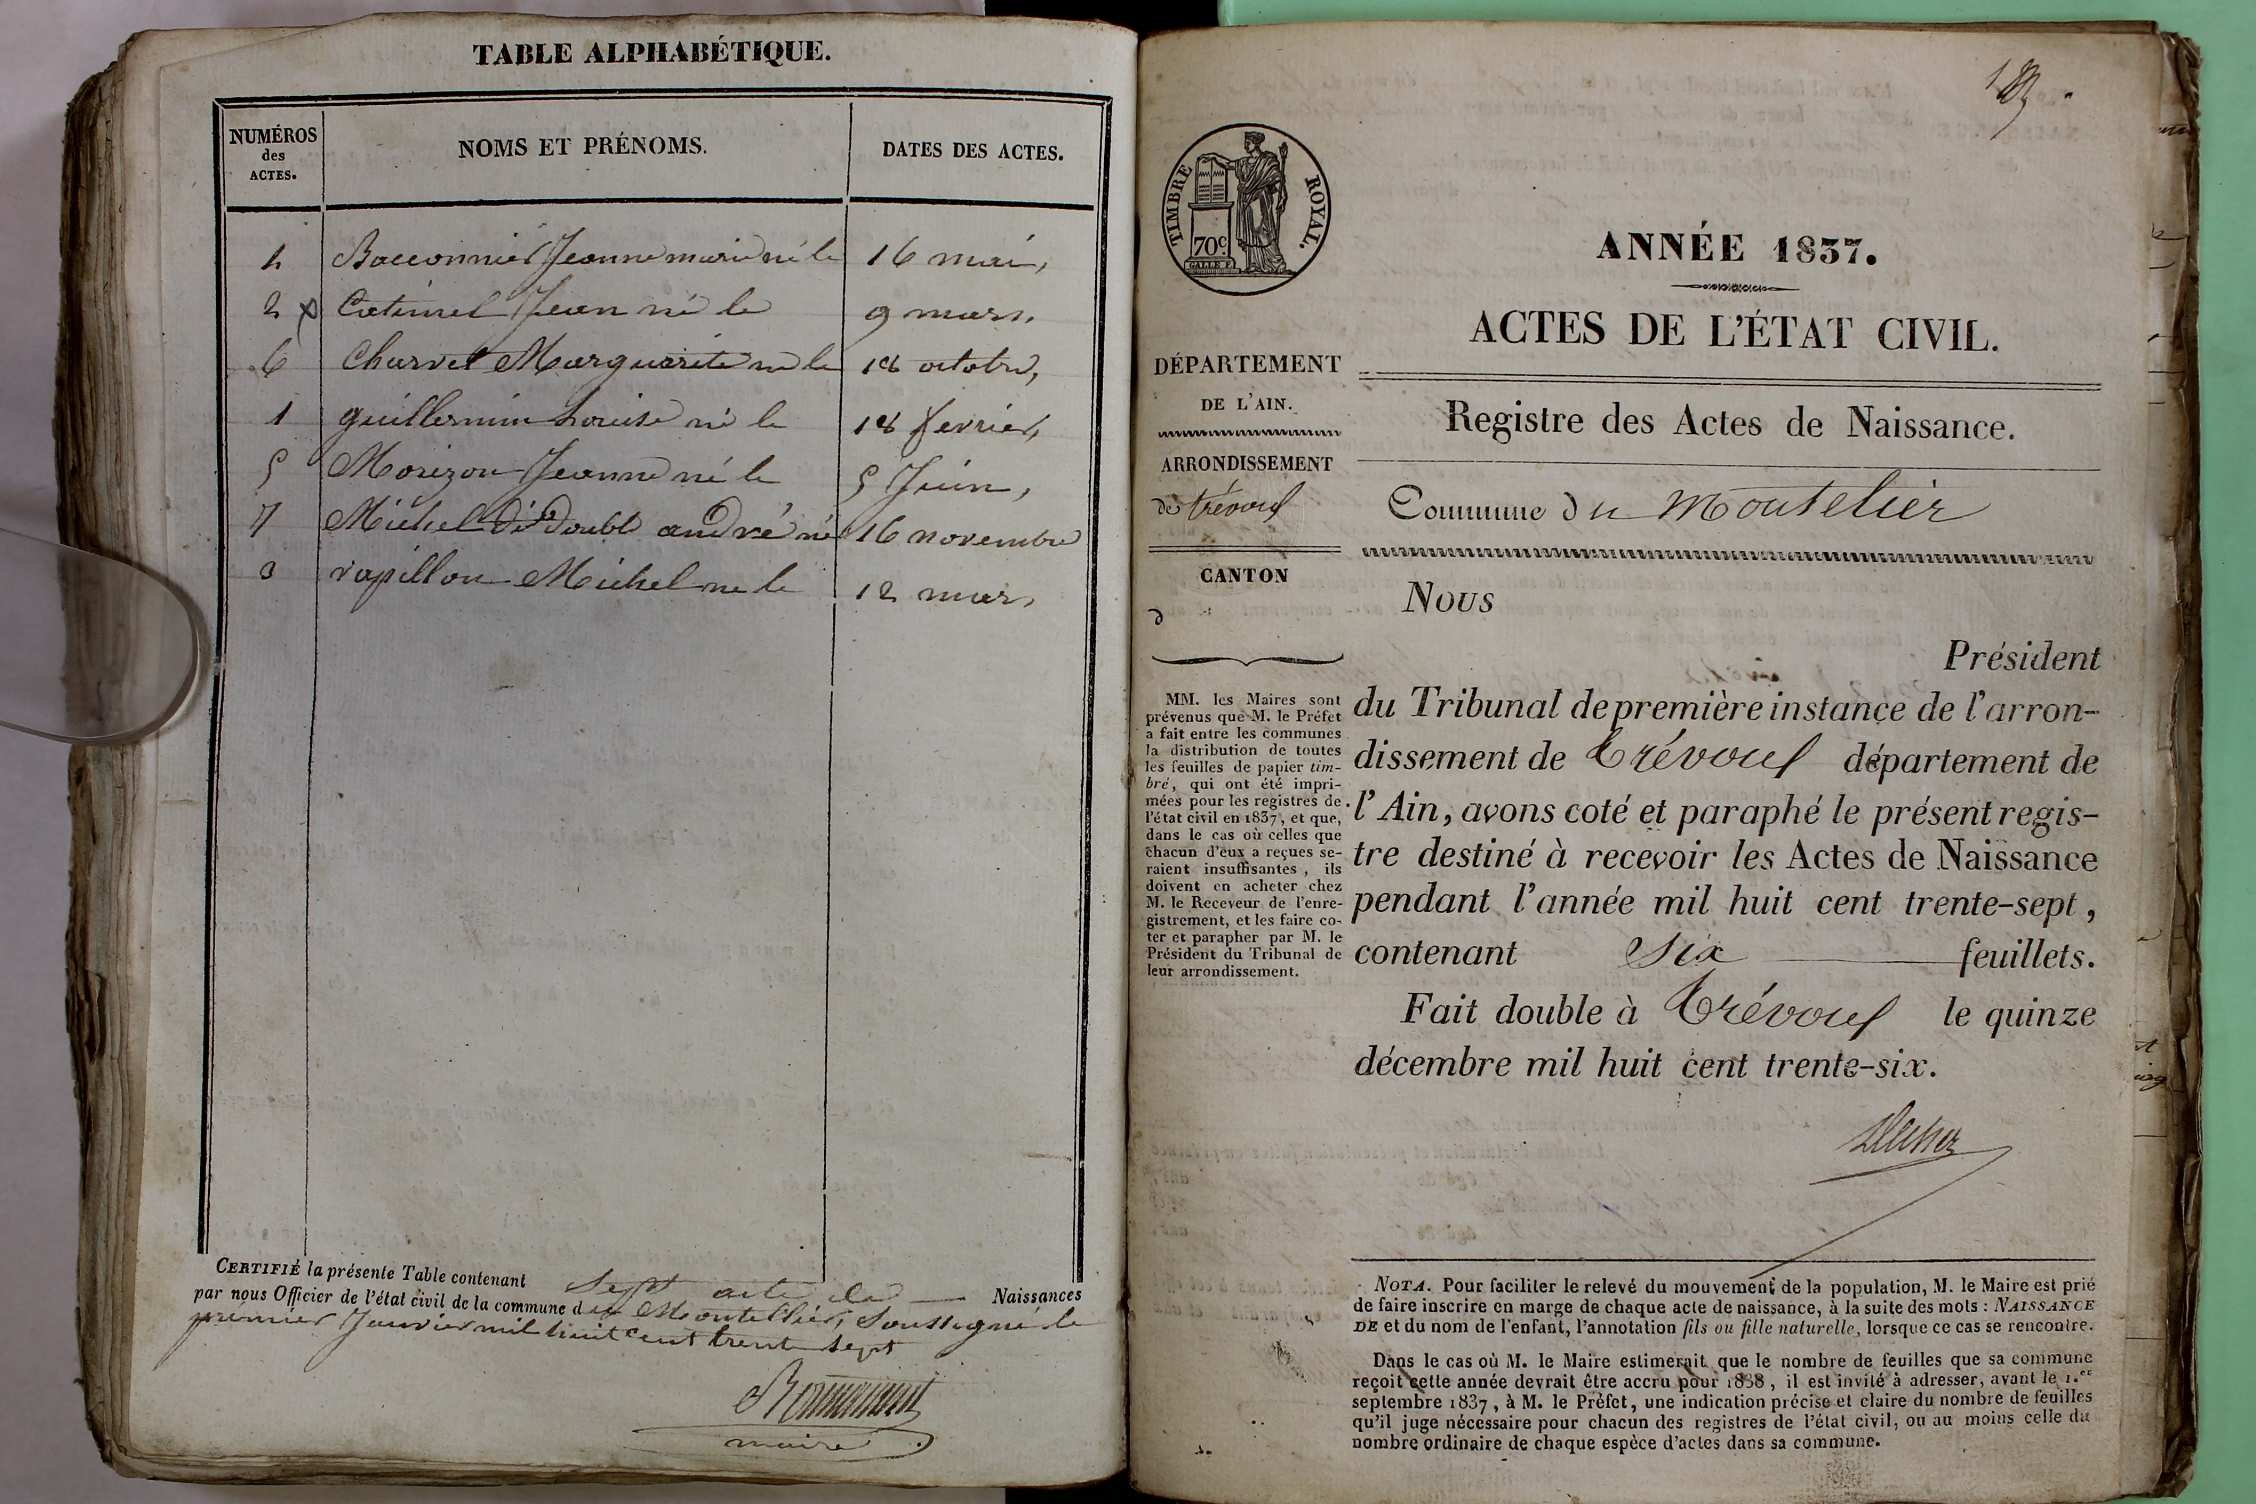 TABLE ALPHABÉTIQUE.
NUMÉROS des ACTES.
NOMS ET PRÉNOMS.
DATES DES ACTES.
4 Bacconnier Jeanne marie né le 16 mai,
2 Catinel Jean né le 9 mars,
6 Charvet Marguerite né le 18 octobre,
1 guillermin Louise né le 18 fevrier,
5 Morizon Jeanne né le 5 Juin,
7 Michel dit Doubl andré né 16 novembre
3 rapillon Michel ne le 12 mars,
CERTIFIÉ la présente Table contenant Sept acte de Naissances
par nous Officier de l'état civil de la commune du Montellier, Soussigné le
premier Janvier mil huit cent trente sept
maire
TIMBRE ROYAL.
70c
DÉPARTEMENT
DE L'AIN.
ARRONDISSEMENT
de trévoux
CANTON
d
MM. les Maires sont
prévenus que M. le Préfet
a fait entre les communes
la distribution de toutes
les feuilles de papier tim-
bré, qui ont été impri-
mées pour les registres de
l'état civil en 1837, et que,
dans le cas où celles que
chacun d'eux a reçues se-
raient insuffisantes, ils
doivent en acheter chez
M. le Receveur de l'enre-
gistrement, et les faire co-
ter et parapher par M. le
Président du Tribunal de
leur arrondissement.
ANNÉE 1837.
ACTES DE L'ÉTAT CIVIL.
Registre des Actes de Naissance.
Commune du Montelier
NOUS
Président
du Tribunal de première instance de l'arron-
dissement de Trévoux département de
l'Ain, avons coté et paraphé le présent regis-
tre destiné à recevoir les Actes de Naissance
pendant l'année mil huit cent trente-sept,
contenant six feuillets.
Fait double à Trévoux le quinze
décembre mil huit cent trente-six.
NOTA. Pour faciliter le relevé du mouvement de la population, M. le Maire est prié
de faire inscrire en marge de chaque acte de naissance, à la suite des mots : NAISSANCE
DE et du nom de l'enfant, l'annotation fils ou fille naturelle, lorsque ce cas se rencontre.
Dans le cas où M. le Maire estimerait que le nombre de feuilles que sa commune
reçoit cette année devrait être accru pour 1838, il est invité à adresser, avant le 1.er
septembre 1837, à M. le Préfet, une indication précise et claire du nombre de feuilles
qu'il juge nécessaire pour chacun des registres de l'état civil, ou au moins celle du
nombre ordinaire de chaque espèce d'actes dans sa commune.